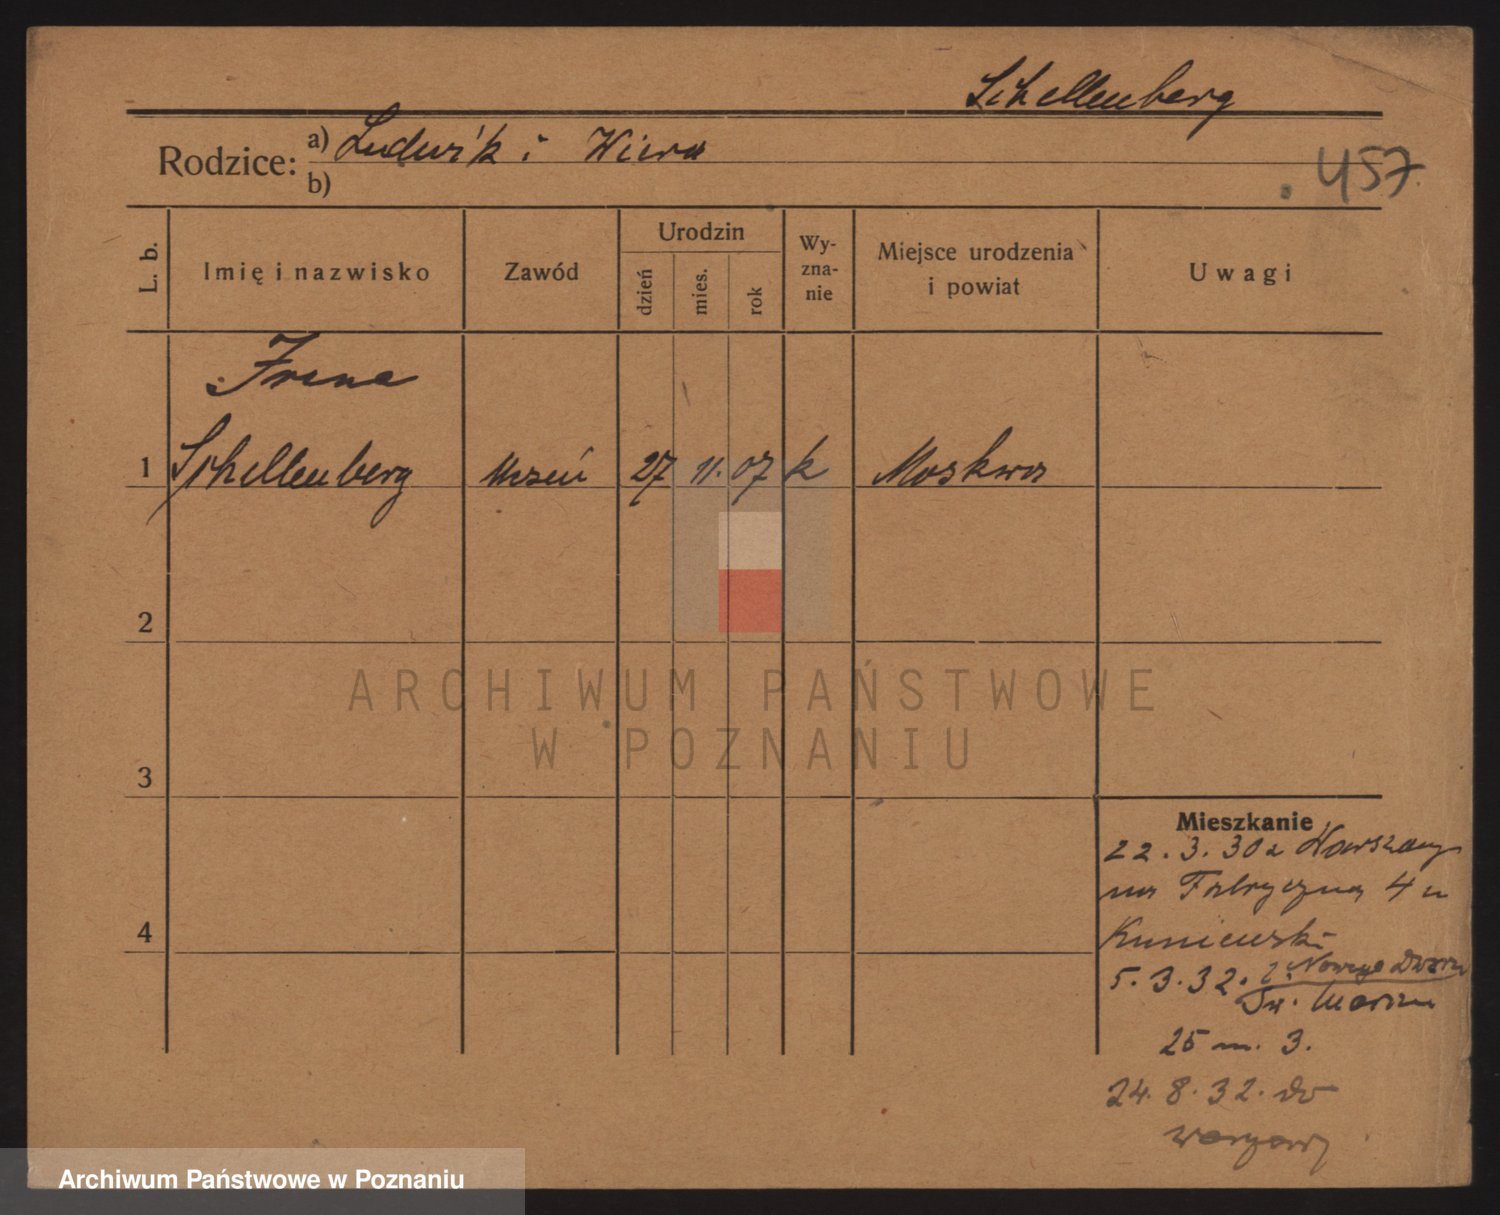 Schellenberg
Rodzice: a) Ludwik i Wiera
b)
457
L. b.
Imię i nazwisko
Zawód
Urodzin
dzień
mies.
rok
Wy-
zna-
nie
Miejsce urodzenia
i powiat
Uwagi
Irena
1 Schellenberg uczeń 27 11. 07 k Moskwa
2
ARCHIWUM PAŃSTWOWE
W POZNANIU
3
Mieszkanie
22.3.30 z Warszawy
na Fabryczną 4 u
4
5.3.32. z Nowego Dworu
Św. Marcin
25 m. 3.
24.8.32. do
Warszawy
Archiwum Państwowe w Poznaniu